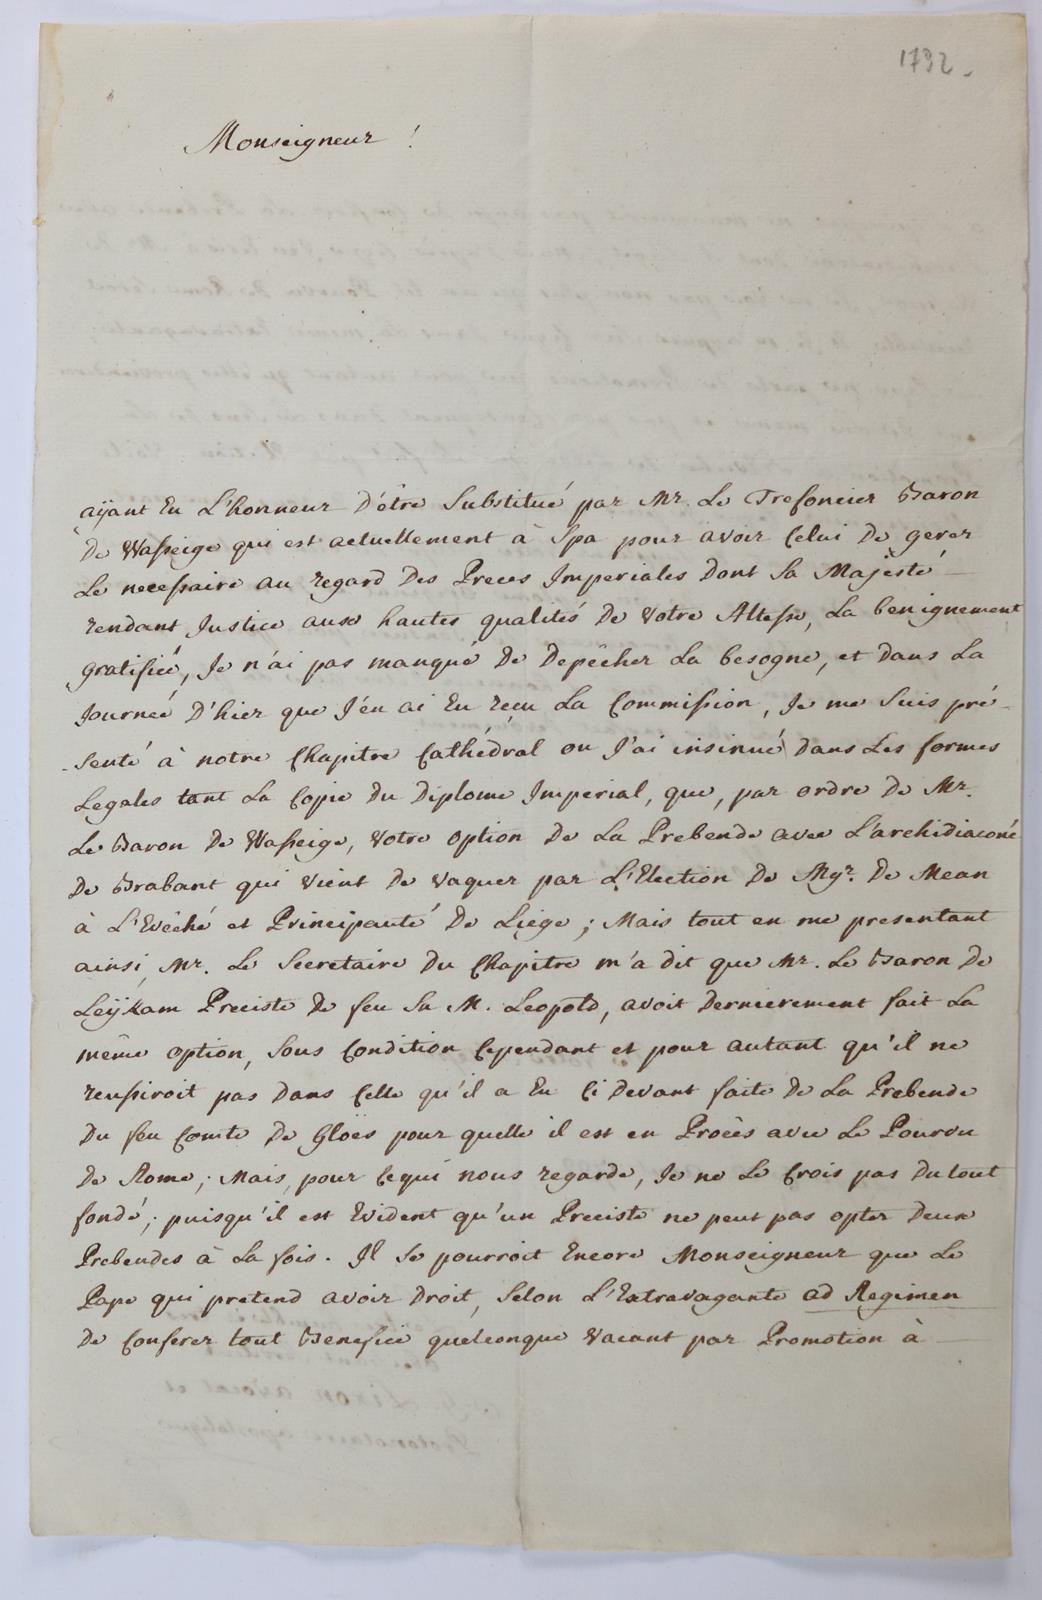 1792.
Monseigneur !
aÿant Eu L'honneur D'être Substitué par Mr. Le Trefoncier Baron
De Wasseige qui est actuellement à Spa pour avoir Celui De gerer
Le necessaire au regard Des Preces Imperiales Dont Sa Majesté
rendant Justice aux hautes qualités De Votre Altesse, La benignement
gratifiée, Je n'ai pas manqué De Depêcher La besogne, et Dans La
Journeé D'hier que J'én ai Eu reçu La Commission, Je me Suis pré-
-senté à notre Chapitre Cathédral ou J'ai insinué Dans Les formes
Legales tant La Copie Du Diplome Imperial, que, par ordre De Mr.
Le Baron De Wasseige, Votre option De La Prebende avec L'archidiaconé
De Brabant qui Vient De Vaquer par L'Election De Mgr. De Mean
à L'Evêché et Principauté De Liege ; Mais tout en me presentant
ainsi, Mr. Le Secretaire Du Chapitre m'a dit que Mr. Le Baron De
Leÿkam Preciste De feu Sa M. Leopold, avoit Dernierement fait La
même option, Sous Condition Cependant et pour autant qu'il ne
reussiroit pas Dans Celle qu'il a Eu Ci Devant faite De La Prebende
Du feu Comte De Gloës pour quelle il est en Procès avec Le Pourvu
De Rome ; Mais, pour Cequi nous regarde, Je ne Le Crois pas Du tout
fondé ; puisqu'il est Evident qu'un Preciste ne peut pas opter Deux
Prebendes à La fois. Il Se pourroit Encore Monseigneur que Le
Pape qui pretend avoir Droit, Selon L'Extravagante ad Regimen
De Conferer tout Benefice quelconque Vacant par Promotion à